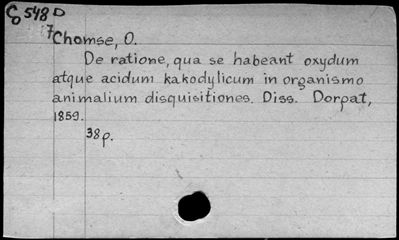 Q 548 D
7 Chomse, O.
De ratione, qua se habeant oxydum
atque acidum kakodylicum in organismo
animalium disquisitiones. Diss. Dorpat,
1859.
38 p.